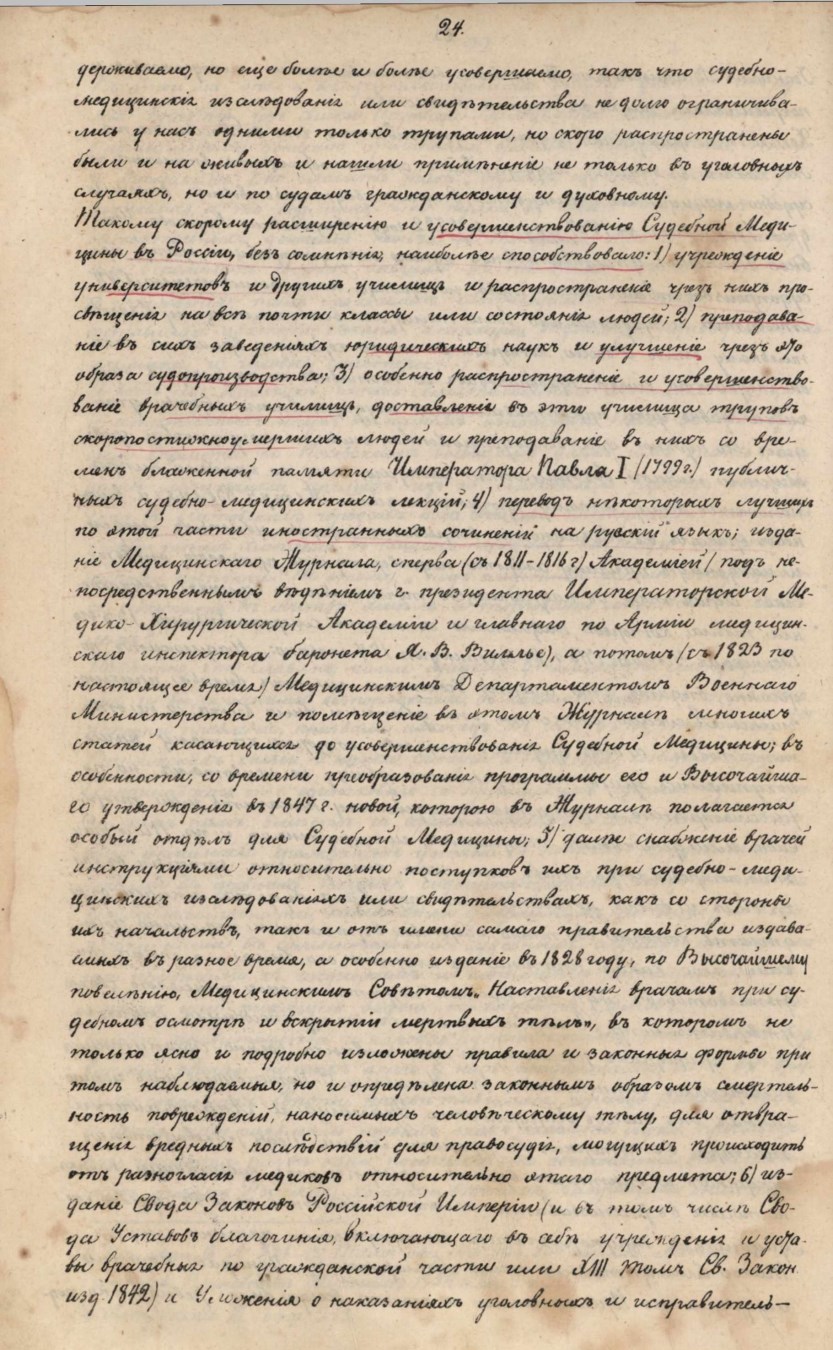 24.
держиваемо, но еще болѣе и болѣе усовершаемо, такъ что судебно-
медицинскія изслѣдованія или свидѣтельства не долго ограничива-
лись у насъ одними только трупами, но скоро распространены
были и на живыхъ и нашли примѣненіе не только въ уголовныхъ
случаяхъ, но и по судамъ гражданскому и духовному.
Такому скорому расширенію и усовершенствованію Судебной Меди-
цины въ Россіи, безъ сомнѣнія, наиболѣе способствовало: 1) учрежденіе
университетовъ и другихъ училищъ и распространеніе чрезъ нихъ про-
свѣщенія на всѣ почти классы или состоянія людей; 2) преподава-
ніе въ сихъ заведеніяхъ юридическихъ наукъ и улучшеніе чрезъ это
образа судопроизводства; 3) особенно распространеніе и усовершенство-
ваніе врачебныхъ училищъ, доставленіе въ эти училища труповъ
скоропостижноумершихъ людей и преподаваніе въ нихъ со вре-
менъ блаженной памяти Императора Павла I (1799 г.) публич-
ныхъ судебно-медицинскихъ лекцій; 4) переводъ нѣкоторыхъ лучшихъ
по этой части иностранныхъ сочиненій на русскій языкъ; изда-
ніе Медицинскаго Журнала, сперва (съ 1811-1816 г.) Академіей (подъ не-
посредственнымъ вѣдѣніемъ г. президента Императорской Ме-
дико-Хирургической Академіи и главнаго по Арміи медицин-
скаго инспектора баронета Я. В. Вилліе), а потомъ (съ 1823 по
настоящее время) Медицинскимъ Департаментомъ Военнаго
Министерства и помѣщеніе въ этомъ Журналѣ многихъ
статей касающихся до усовершенствованія Судебной Медицины; въ
особенности, со времени преобразованія программы его и Высочайша-
го утвержденія въ 1847 г. новой, которою въ Журналѣ полагается
особый отдѣлъ для Судебной Медицины; 5) далѣе снабженіе врачей
инструкціями относительно поступковъ ихъ при судебно-меди-
цинскихъ изслѣдованіяхъ или свидѣтельствахъ, какъ со стороны
ихъ начальствъ, такъ и отъ имени самаго правительства издава-
емыхъ въ разное время, а особенно изданіе въ 1828 году, по Высочайшему
повелѣнію, Медицинскимъ Совѣтомъ „Наставленія врачамъ при су-
дебномъ осмотрѣ и вскрытіи мертвыхъ тѣлъ", въ которомъ не
только ясно и подробно изложены правила и законныя формы при
томъ наблюдаемыя, но и опредѣлена законнымъ образомъ смертель-
ность поврежденій, наносимыхъ человѣческому тѣлу, для отвра-
щенія вредныхъ послѣдствій для правосудія, могущихъ происходить
отъ разногласія медиковъ относительно этаго предмета; 6) из-
даніе Свода Законовъ Россійской Имперіи (и въ томъ числѣ Сво-
да Уставовъ благочинія, включающаго въ себѣ учрежденія и уста-
вы врачебные по гражданской части или XIII томъ Св. Закон.
изд. 1842) и Уложенія о наказаніяхъ уголовныхъ и исправитель-